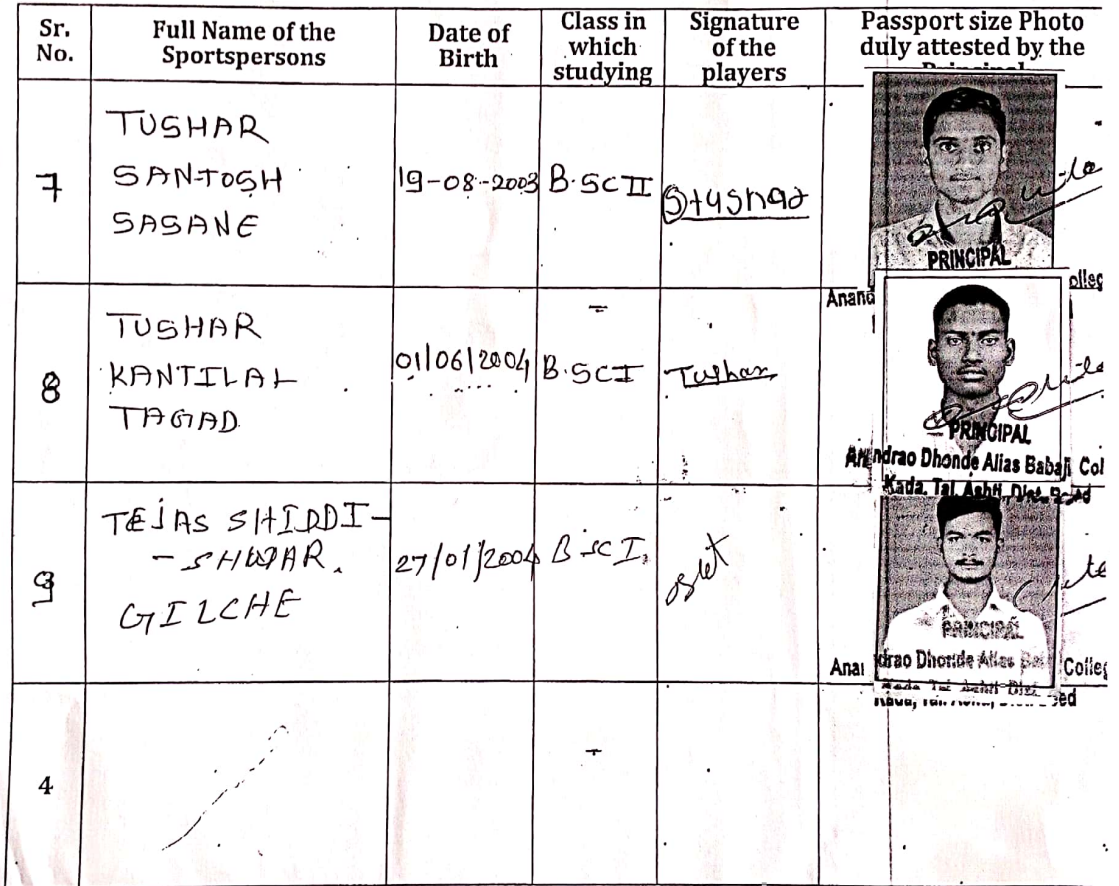 Sr. No.
Full Name of the Sportspersons
Date of Birth
Class in which studying
Signature of the players
Passport size Photo duly attested by the Principal
7
TUSHAR
SANTOSH
SASANE
19-08-2003
B.SC II
PRINCIPAL
Anand
olleg
8
TUSHAR
KANTILAL
TAGAD
01/06/2004
B.SC I
Tushar
PRINCIPAL
Anandrao Dhonde Alias Babaji Col
Kada, Tal. Ashti, Dist. Beed
9
TEJAS SHIDDI-
-SHWAR.
GILCHE
27/01/2004
B SC I
PRINCIPAL
Anandrao Dhonde Alias Colleg
4